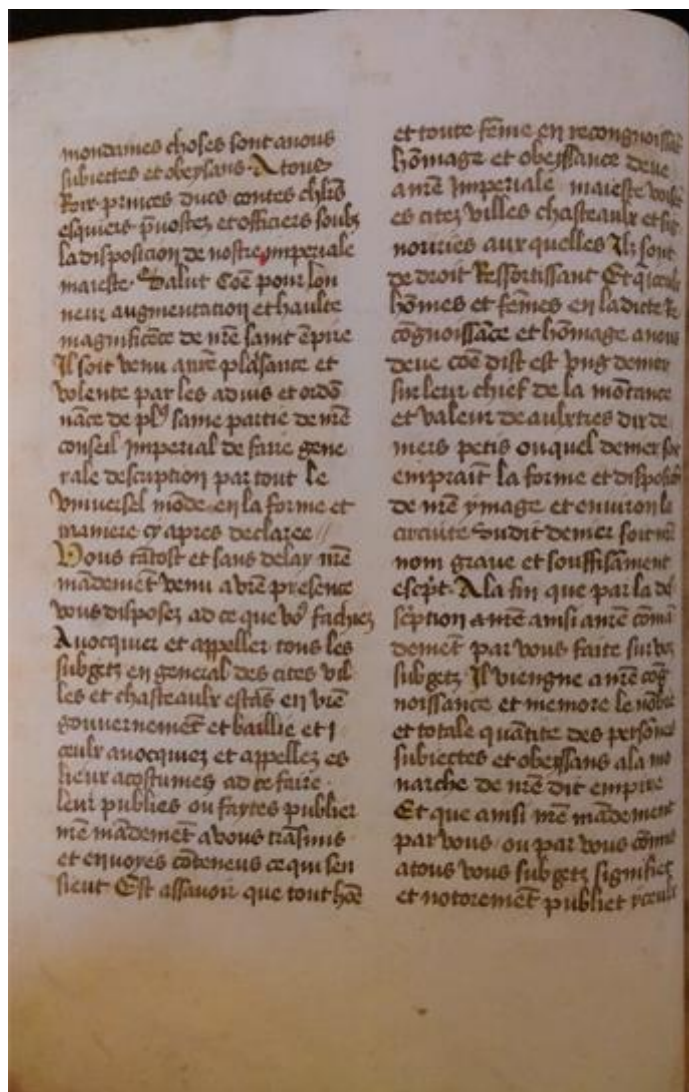 mondaines choses sont a nous
subiectes et obeyssans. A tous
Roix princes ducs contes chlrs
esquiers p̄uostez et officiers soubz
la disposicion de nostre imperiale
maieste. Salut Cōe pour lon
neur augmentacion et haulte
magnificēce de nrē saint ēpire
Il soit venu a nrē plaisance et
volente par les aduis et ordō
nāce de plꝰ saine partie de nrē
conseil imperial de faire gene
rale descripcion par tout le
vniuersel mōde en la forme et
maniere cy apres declaree //
Vous tātost et sans delay nrē
mādemēt venu a vrē presence
vous disposez ad ce que voꝰ faciez
Auocquier et appeller tous les
subgetz en general des cites vil
les et chasteaulx estās en vrē
gouuernemēt et baillie et i
ceulx auocquiez et appellez es
lieux acostumes ad ce faire
leur publies ou faytes publier
nrē mādemēt a vous trāsmis
et enuoyes cōteneus ce qui sen
sieut Est assauoir que tout hōe
et toute fēme en recongnoissāce
hōmage et obeyssance deue
a nrē imperiale maieste voise
es citez villes chasteaulx et sig
nouries aux quelles Ilz sont
de droit Ressortissant Et q̄ iceulx
hōmes et fēmes en ladicte Re
cōgnoissāce et hōmage a nous
deue cōe dist est p̄ng denier
sur leur chief de la mōtance
et valeur de aulxtres dix de
niers petis ou quel denier soit
empraīt la forme et disposiciō
de nrē ymage et enuiron le
circuite dudit denier soit nrē
nom graue et souffisāment
escp̄t. A la fin que par la de
scp̄tion a nrē ainsi a nrē cōmā
demēt par vous faite sur voz
subgetz Il viengne a nrē cog
noissance et memore le nōbre
et totale quātite des persōnes
subiectes et obeyssans a la mo
narche de nrē dit empire
Et que ainsi nrē mādement
par vous ou par vous cōmis
a tous vous subgetz signifiez
et notoremēt publiet yceulx